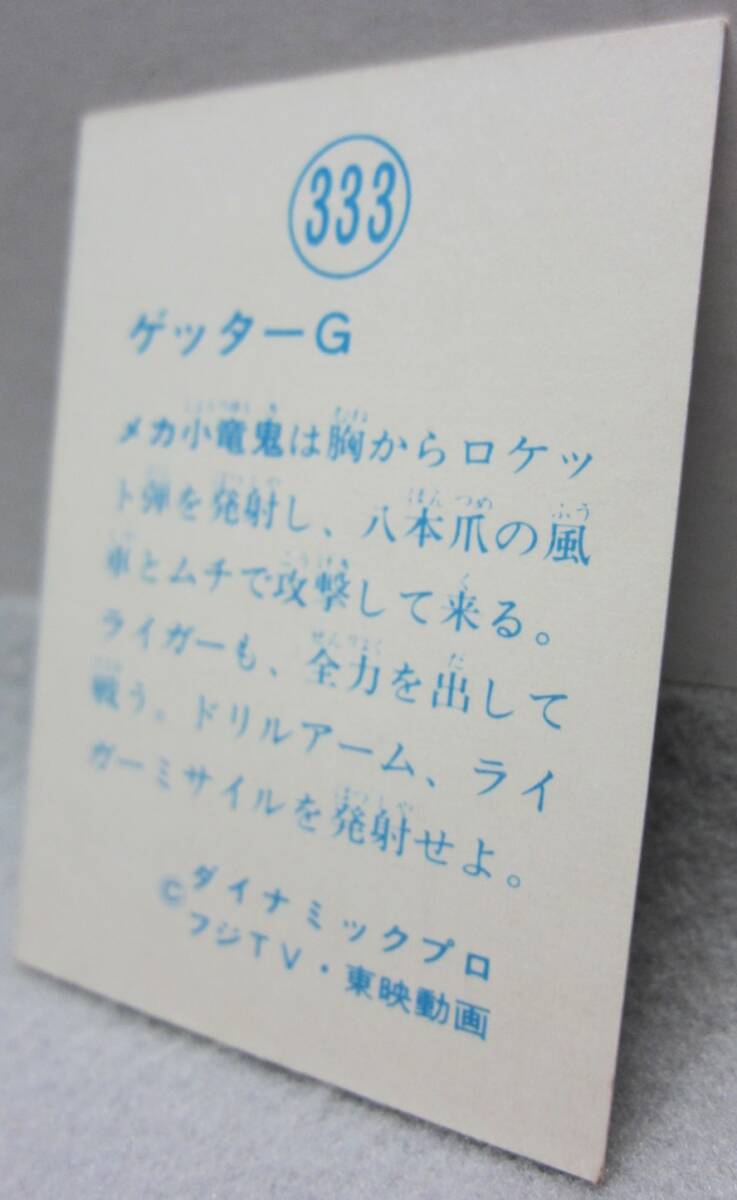 333
ゲッターG
メカ小竜鬼は胸からロケッ
ト弾を発射し、八本爪の風
車とムチで攻撃して来る。
ライガーも、全力を出して
戦う。ドリルアーム、ライ
ガーミサイルを発射せよ。
©ダイナミックプロ
フジTV・東映動画